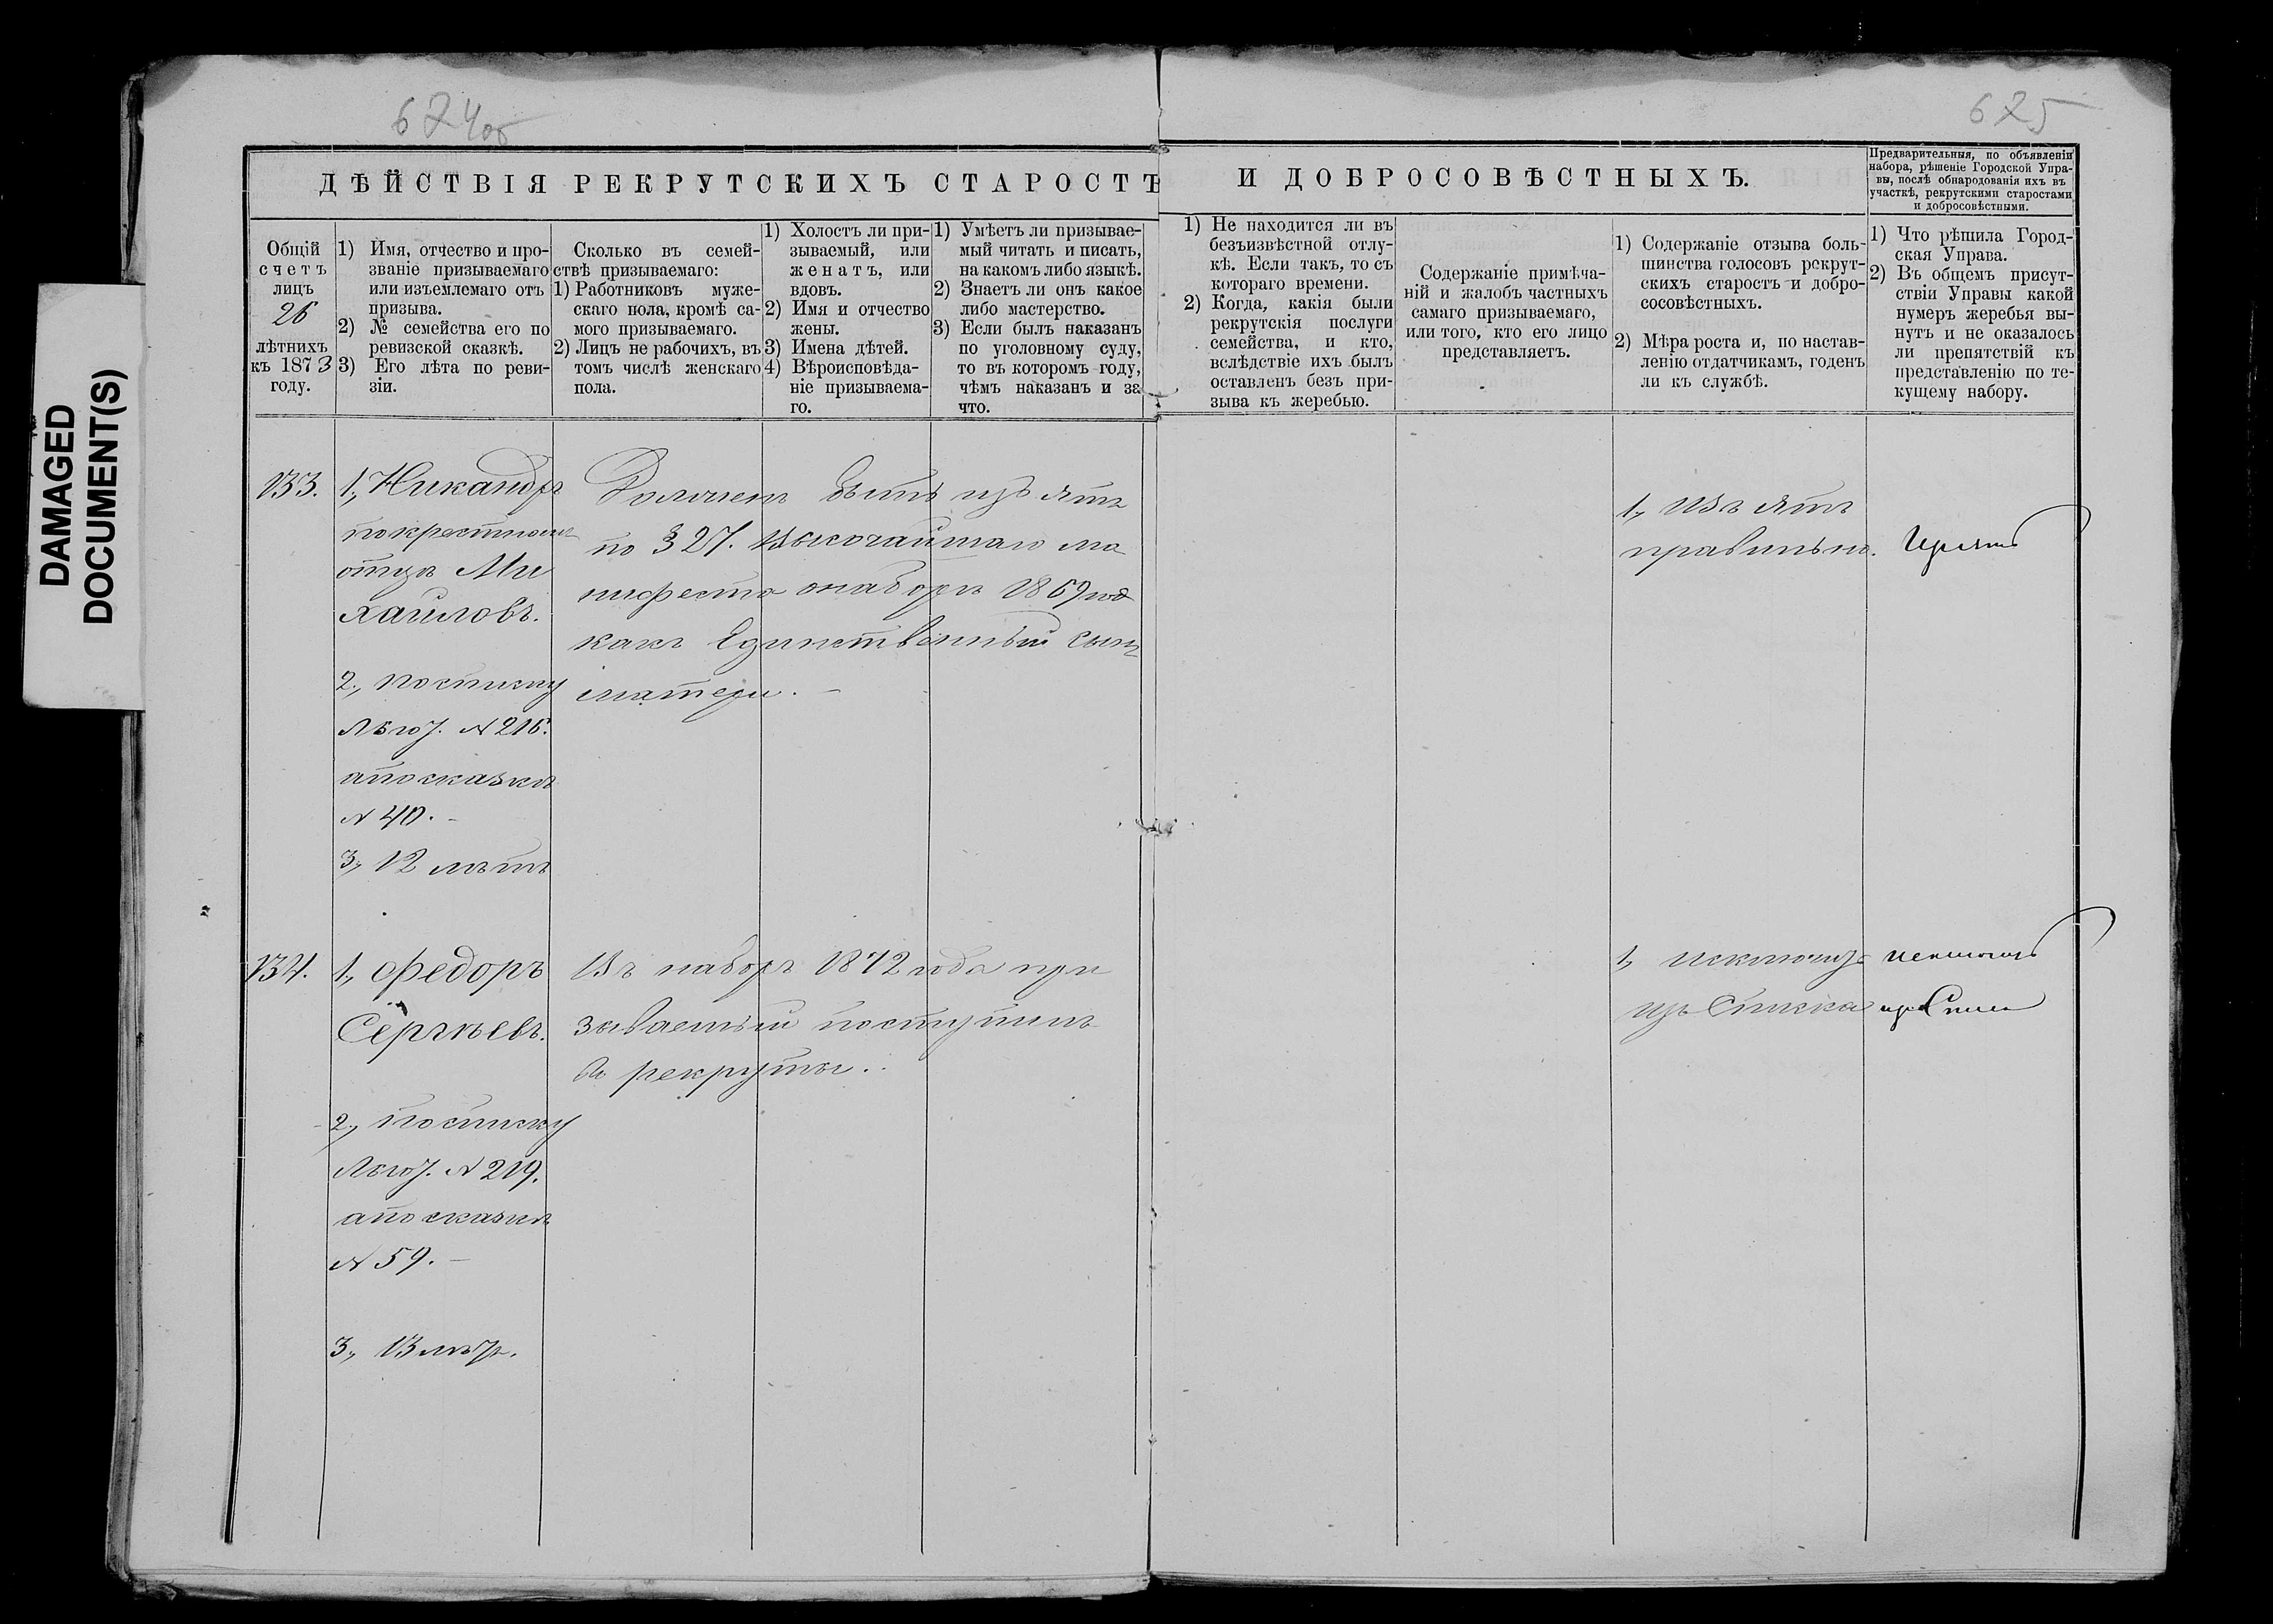 624об
625
DAMAGED
DOCUMENT(S)
ДѢЙСТВІЯ РЕКРУТСКИХЪ СТАРОСТЪ
И ДОБРОСОВѢСТНЫХЪ.
Предварительныя, по объявленіи
набора, рѣшеніе Городской Упра-
вы, послѣ обнародованія ихъ въ
участкѣ, рекрутскими старостами
и добросовѣстными.
Общій
счетъ
лицъ
26
лѣтнихъ
къ 1873
году.
1) Имя, отчество и про-
званіе призываемаго
или изъемлемаго отъ
призыва.
2) № семейства его по
ревизской сказкѣ.
3) Его лѣта по реви-
зіи.
Сколько въ семей-
ствѣ призываемаго:
1) Работниковъ муже-
скаго пола, кромѣ са-
мого призываемаго.
2) Лицъ не рабочихъ, въ
томъ числѣ женскаго
пола.
1) Холостъ ли при-
зываемый, или
женатъ, или
вдовъ.
2) Имя и отчество
жены.
3) Имена дѣтей.
4) Вѣроисповѣда-
ніе призываема-
го.
1) Умѣетъ ли призывае-
мый читать и писать,
на какомъ либо языкѣ.
2) Знаетъ ли онъ какое
либо мастерство.
3) Если былъ наказанъ
по уголовному суду,
то въ которомъ году,
чѣмъ наказанъ и за
что.
1) Не находится ли въ
безъизвѣстной отлу-
кѣ. Если такъ, то съ
котораго времени.
2) Когда, какія были
рекрутскія послуги
семейства, и кто,
вслѣдствіе ихъ былъ
оставленъ безъ при-
зыва къ жеребью.
Содержаніе примѣча-
ній и жалобъ частныхъ
самаго призываемаго,
или того, кто его лицо
представляетъ.
1) Содержаніе отзыва боль-
шинства голосовъ рекрут-
скихъ старостъ и добро-
сосовѣстныхъ.
2) Мѣра роста и, по настав-
ленію отдатчикамъ, годенъ
ли къ службѣ.
1) Что рѣшила Город-
ская Управа.
2) Въ общемъ присут-
ствіи Управы какой
нумеръ жеребья вы-
нутъ и не оказалось
ли препятствій къ
представленію по те-
кущему набору.
133.
1, Никандръ
по крестному
отцу Ми
хайловъ.
2, по списку
N 216.
а по сказкѣ
N 40.
3, 12 лѣтъ
Долженъ быть изъятъ
по § 27. Высочайшаго ма
нифеста о наборѣ 1869 года
какъ Единственный сынъ
матери.
1, Изъятъ
правильно.
Изъять
134.
1, Федоръ
Сергѣевъ.
2, По списку
N 219.
а по сказкѣ
N 59.
3, 13 лѣтъ.
Въ наборъ 1872 года при
зываемый поступилъ
въ рекруты.
1, Исключить
изъ Списка
Исключить
изъ Списка